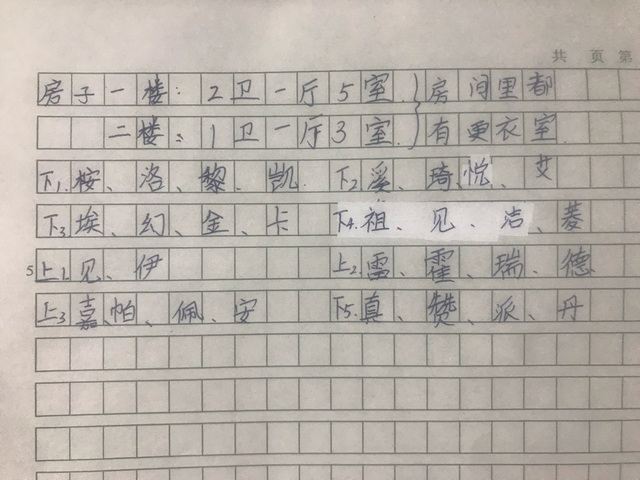 共 页 第
房子一楼：2卫一厅5室｝房间里都
二楼：1卫一厅3室｝有更衣室
下1.桉、洛、黎、凯 下2.溪、琦、悦、艾
下3埃、幻、金、卡 下4.祖、见、洁、菱
5 上1见、伊 上2.雷、霍、瑞、德
上3嘉、帕、佩、安 下5.真、赞、派、丹